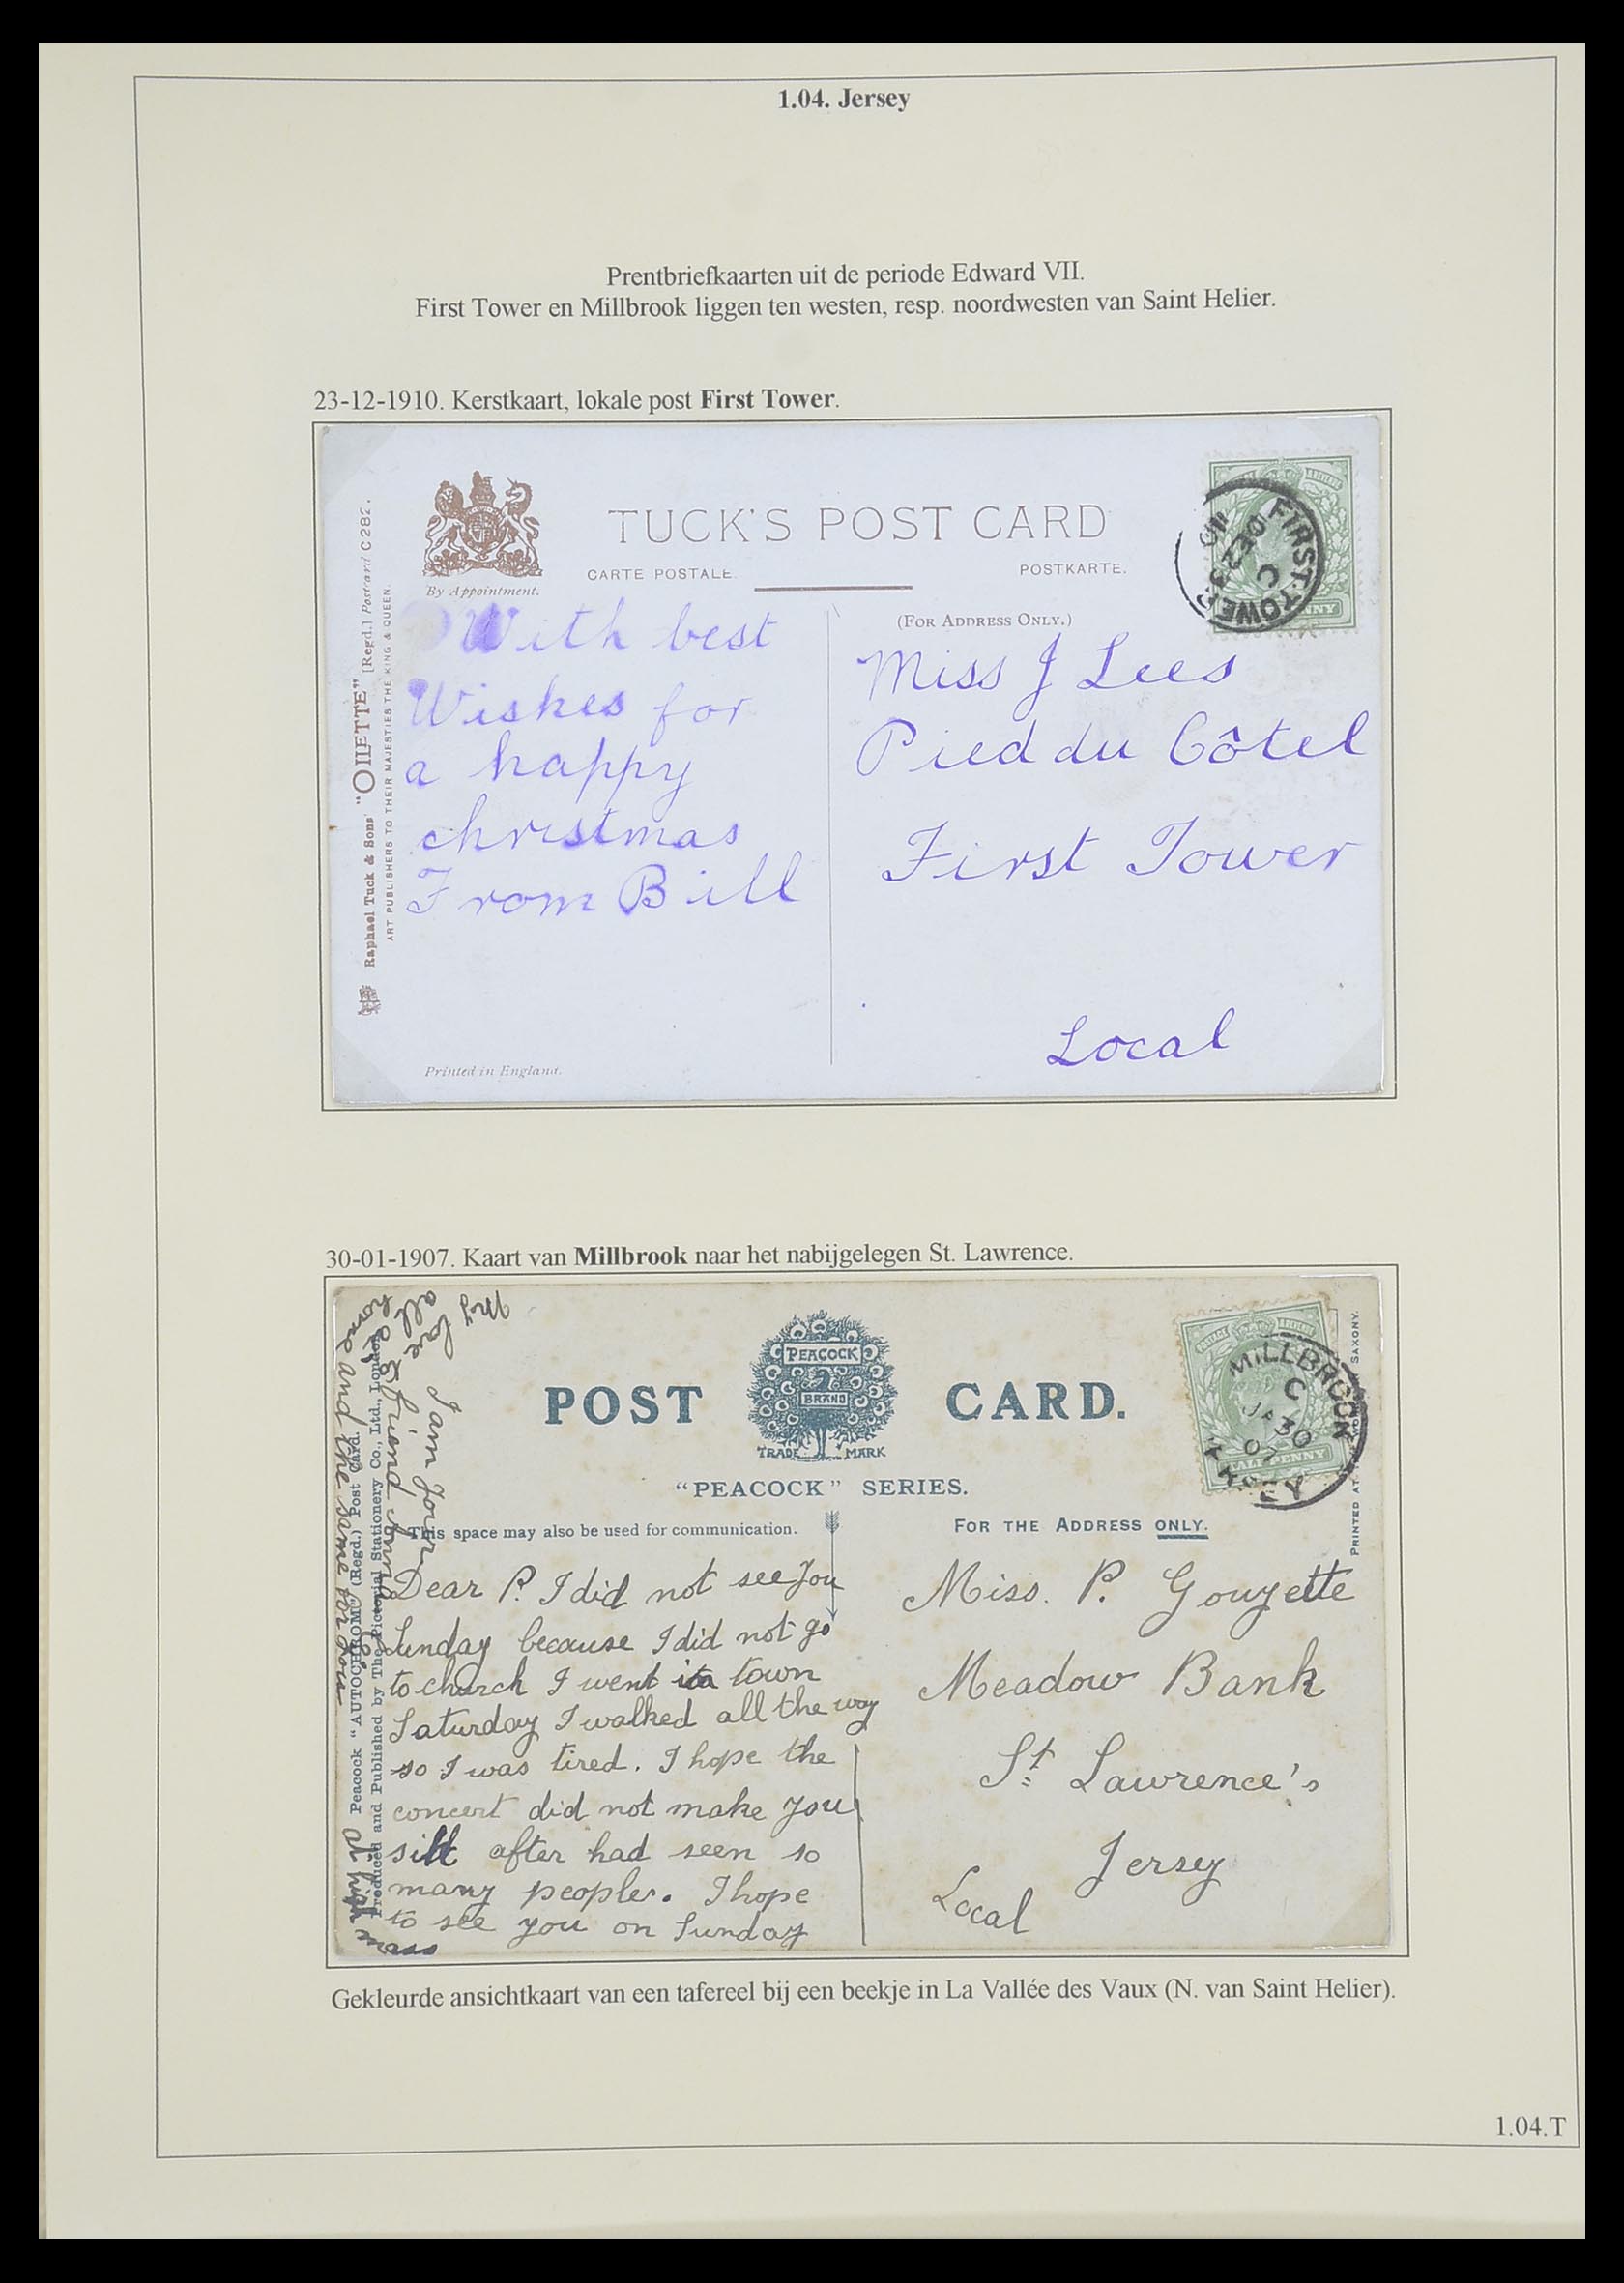 1.04. Jersey
Prentbriefkaarten uit de periode Edward VII.
First Tower en Millbrook liggen ten westen, resp. noordwesten van Saint Helier.
23-12-1910. Kerstkaart, lokale post First Tower.
TUCK'S POST CARD
CARTE POSTALE.
POSTKARTE.
By Appointment.
(FOR ADDRESS ONLY.)
FIRST.TOWER
C
DE 23
10
Raphael Tuck & Sons' "OILETTE" [Regd.] Postcard C 282.
ART PUBLISHERS TO THEIR MAJESTIES THE KING & QUEEN.
With best
Wishes for
a happy
christmas
From Bill
Miss J Lees
Pied du Côtel
First Tower
Local
Printed in England.
30-01-1907. Kaart van Millbrook naar het nabijgelegen St. Lawrence.
POST CARD.
PEACOCK
BRAND
TRADE MARK
"PEACOCK" SERIES.
MILLBROOK
C
JA 30
07
HALF PENNY
This space may also be used for communication.
FOR THE ADDRESS ONLY.
PRINTED AT SAXONY.
Peacock "AUTOCHROM" (Regd.) Post Card.
Produced and Published by The Pictorial Stationery Co., Ltd., London.
Dear P. I did not see you
Sunday because I did not go
to church I went to town
Saturday I walked all the way
so I was tired. I hope the
concert did not make you
after had seen so
many people. I hope
to see you on Sunday
at high mass
I am your
friend
My love to
all at
home and the same for you
Miss. P. Gouyette
Meadow Bank
St Lawrence's
Jersey
Local
Gekleurde ansichtkaart van een tafereel bij een beekje in La Vallée des Vaux (N. van Saint Helier).
1.04.T